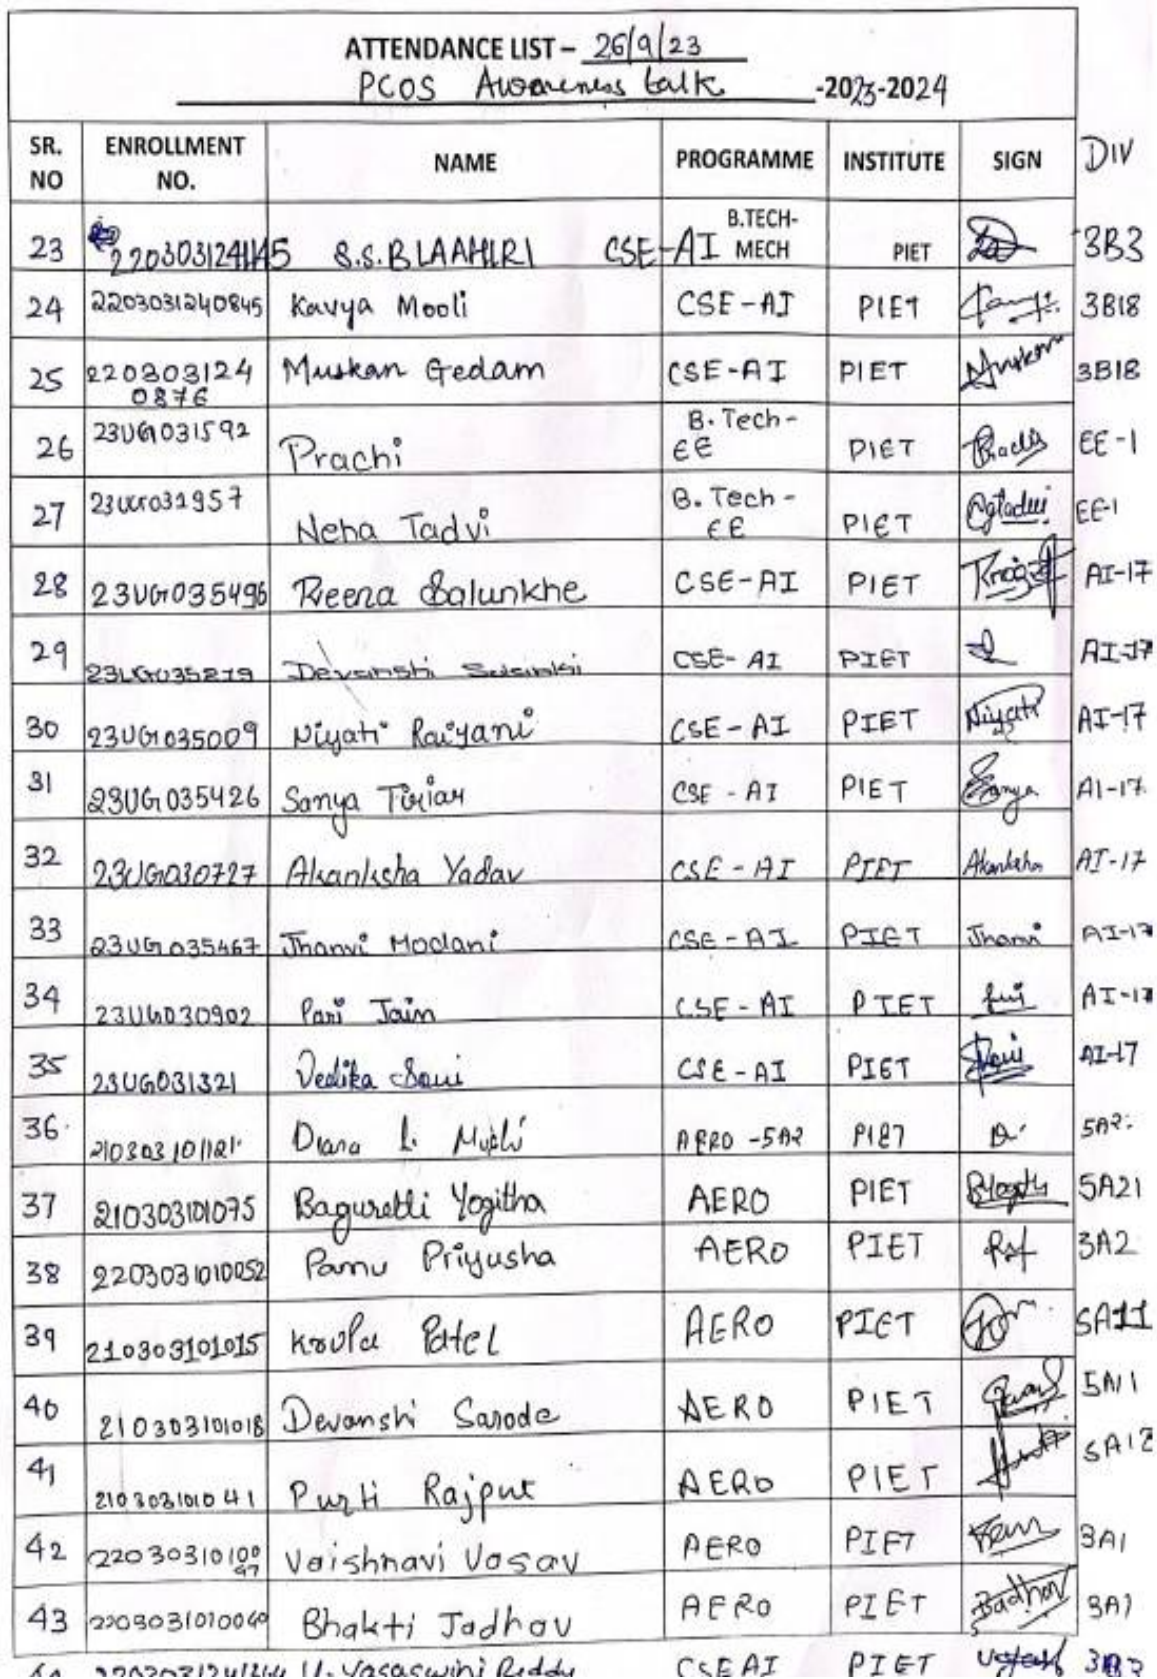 ATTENDANCE LIST – 26/9/23
PCOS Awareness talk -2023-2024
SR. NO ENROLLMENT NO. NAME PROGRAMME INSTITUTE SIGN DIV
23 2203031241145 S.S.B LAAHIRI CSE-AI B.TECH-MECH PIET 3B3
24 2203031240845 Kavya Mooli CSE-AI PIET 3B18
25 2203031240876 Muskan Gedam CSE-AI PIET Muskan 3B18
26 23UG031592 Prachi B.Tech-EE PIET Prachi EE-1
27 23UG031957 Neha Tadvi B.Tech-EE PIET EE-1
28 23UG035496 Reena Salunkhe CSE-AI PIET AI-17
29 23UG035219 Devanshi CSE-AI PIET AI-17
30 23UG035009 Niyati Raiyani CSE-AI PIET Niyati AI-17
31 23UG035426 Sanya Tiriar CSE-AI PIET Sanya AI-17
32 23UG030727 Akanksha Yadav CSE-AI PIET Akanksha AI-17
33 23UG035467 Jhanvi Modani CSE-AI PIET Jhanvi AI-17
34 23UG030902 Pari Jain CSE-AI PIET AI-17
35 23UG031321 Vedika Soni CSE-AI PIET AI-17
36 210303101121 Diana L. AERO-5A2 PIET D. 5A2
37 210303101075 Bagurelli Yogitha AERO PIET 5A21
38 2203031010052 Pamu Priyusha AERO PIET 3A2
39 210303101015 Krupa Patel AERO PIET 5A11
40 210303101018 Devanshi Sarode AERO PIET 5A11
41 210303101041 Purti Rajput AERO PIET 5A12
42 2203031010097 Vaishnavi Vasav AERO PIET 3A1
43 2203031010040 Bhakti Jadhav AERO PIET Badhav 3A1
U. Yasaswini Reddy CSE AI PIET 3B3